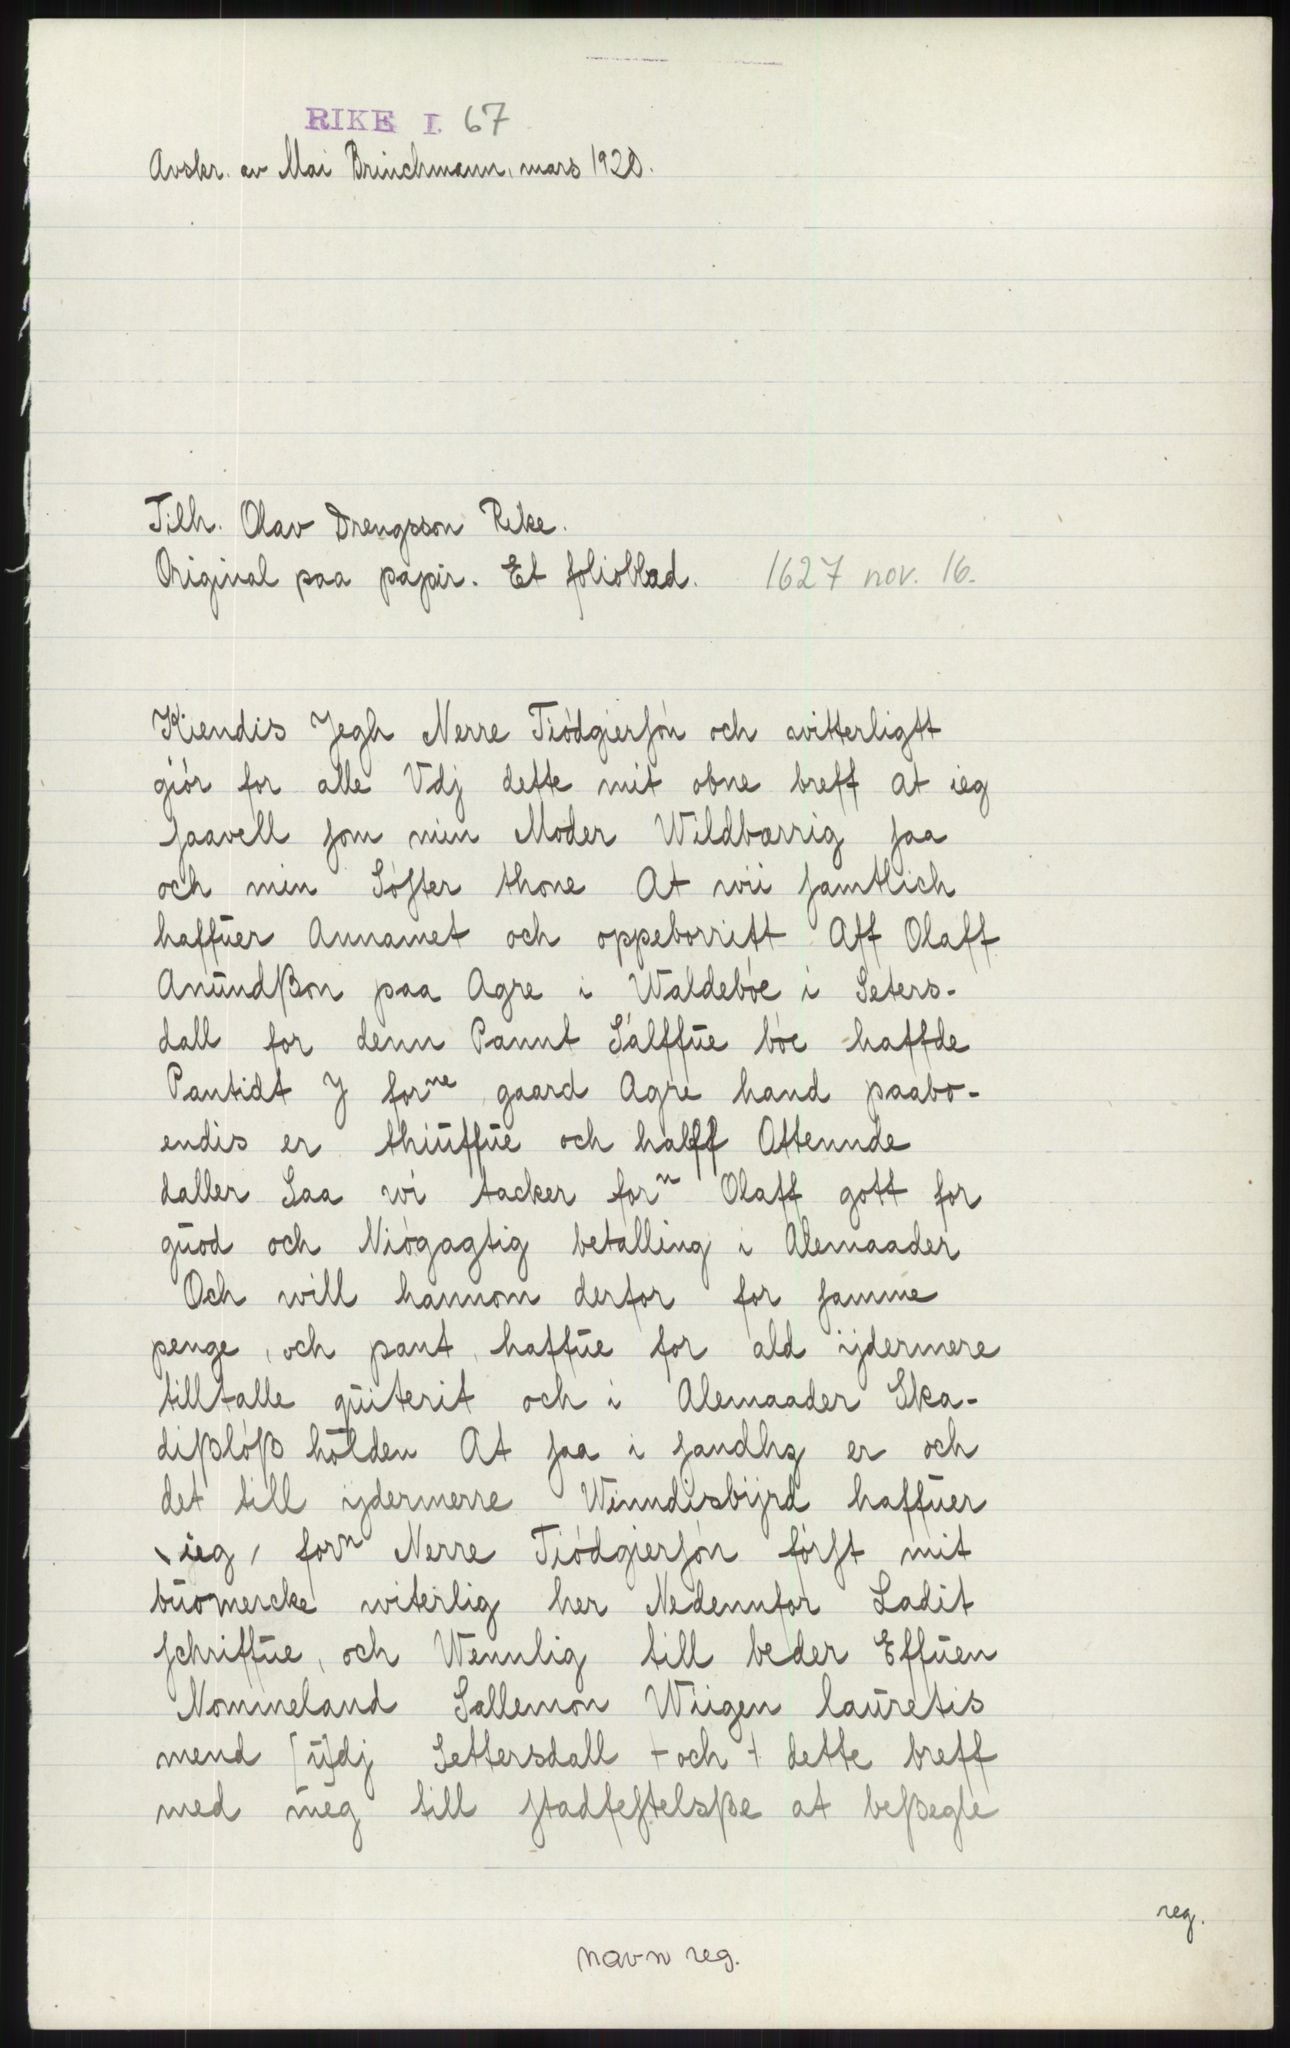 RIKE I. 67
Avskr. av Mai Brinchmann, mars 1920.
Tilh. Olav Drengsson Rike.
Original paa papir. Et folioblad. 1627 nov. 16.
Kiendis Jegh Nerre Tiódgierſón och witterligtt
giór for alle Vdj dette mit obne breff at ieg
ſaavell ſom min Moder Wildbærrig ſaa
och min Sóſter thone At wii ſamtlich
haffŭer Annamet och oppeborritt Aff Olaff
Anŭndßon paa Agre i Waldebóe i Seters-
dall for denn Pannt Sálffŭe bóe haffde
Pantidt J forne gaard Agre hand paabo-
endis er thiŭffŭe och halff Attennde
daller Saa wi tacker forn Olaff gott for
gŭod och Niógagtig betalling i Alemaader
Och will hannom derfor for ſamme
penge, och pant, haffŭe for ald ijdermere
tilltalle qŭiterit och i Alemaader Ska-
dißlóß hólden At ſaa i ſandhz er och
det till ijdermerre Winndisbijrd haffŭer
ieg, forn Nerre Tiódgierſón fórſt mit
bŭomercke witerlig her Nedennfor Ladit
ſchriffŭe, och Wennlig till beder Effŭen
Nommeland Sallemon Wiigen laŭretis
mend [ŭ]dj Settersdall + och + dette breff
med meg till ſtadfeſtelsße at beßegle
reg.
navn reg.